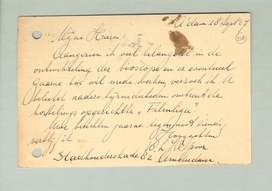 A'dam 28 Sept '27
Mijne Heeren
Aangezien ik veel belangstel in de
ontwikkeling der bioscope en er eventueel
gaarne wat mede werken, verzoek ik U
beleefd nadere bijzonderheden omtrent de
opgerichte "Filmliga"
Uwe berichten gaarne tegemoet ziende
Hoogachtend
Stadhouderskade 82 Amsterdam